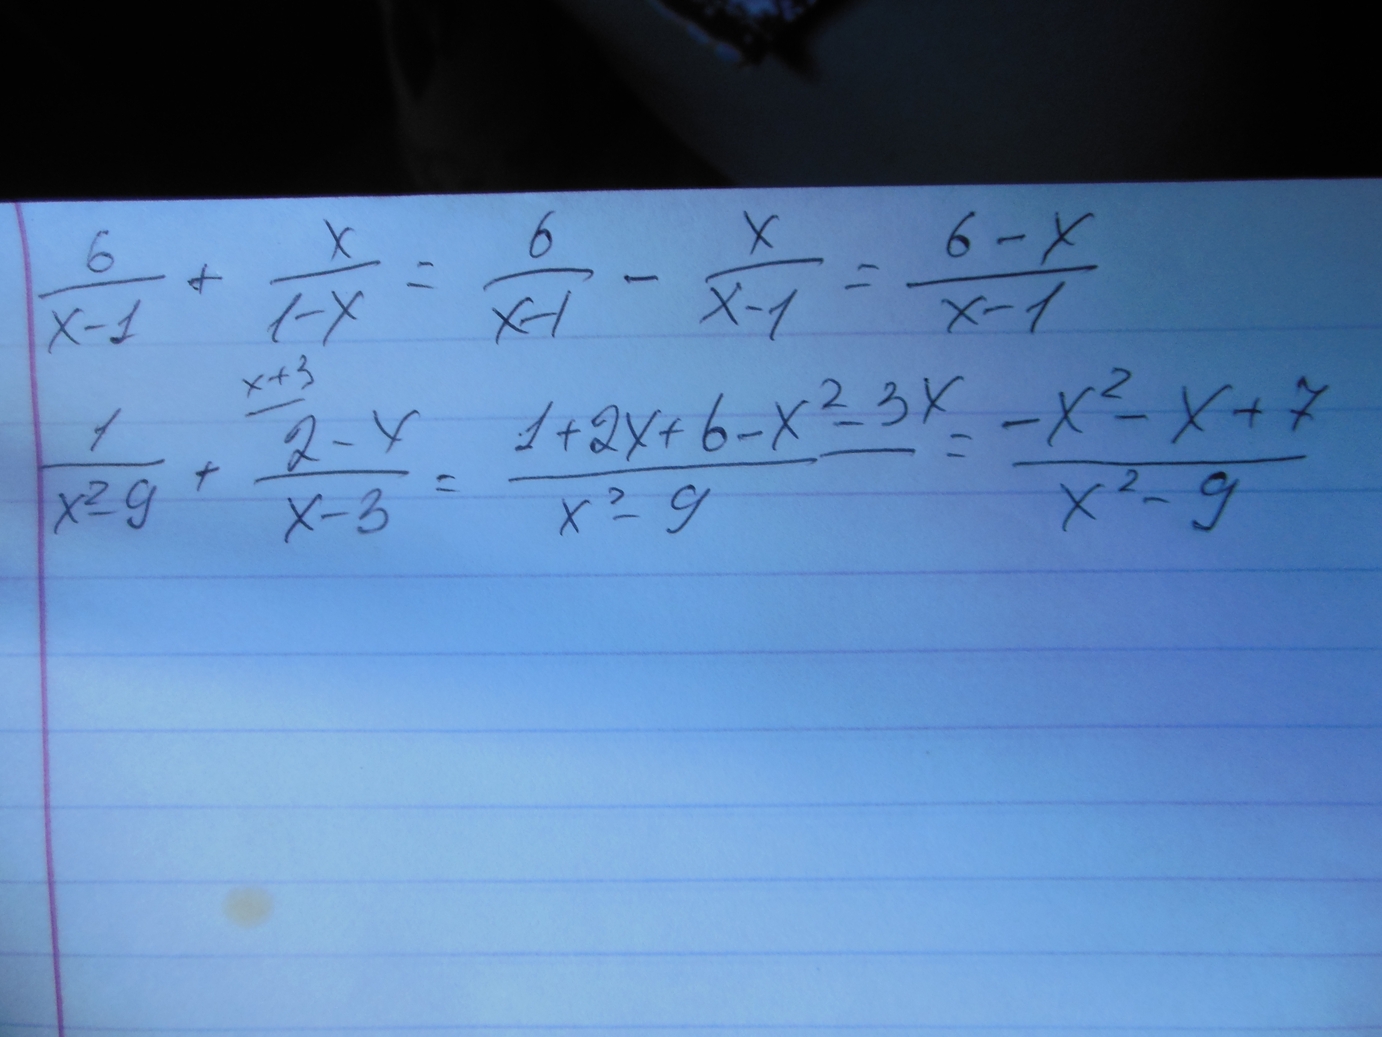 6/(x-1) + x/(1-x) = 6/(x-1) - x/(x-1) = (6-x)/(x-1)
x+3
1/(x²-9) + (2-x)/(x-3) = (1+2x+6-x²-3x)/(x²-9) = (-x²-x+7)/(x²-9)